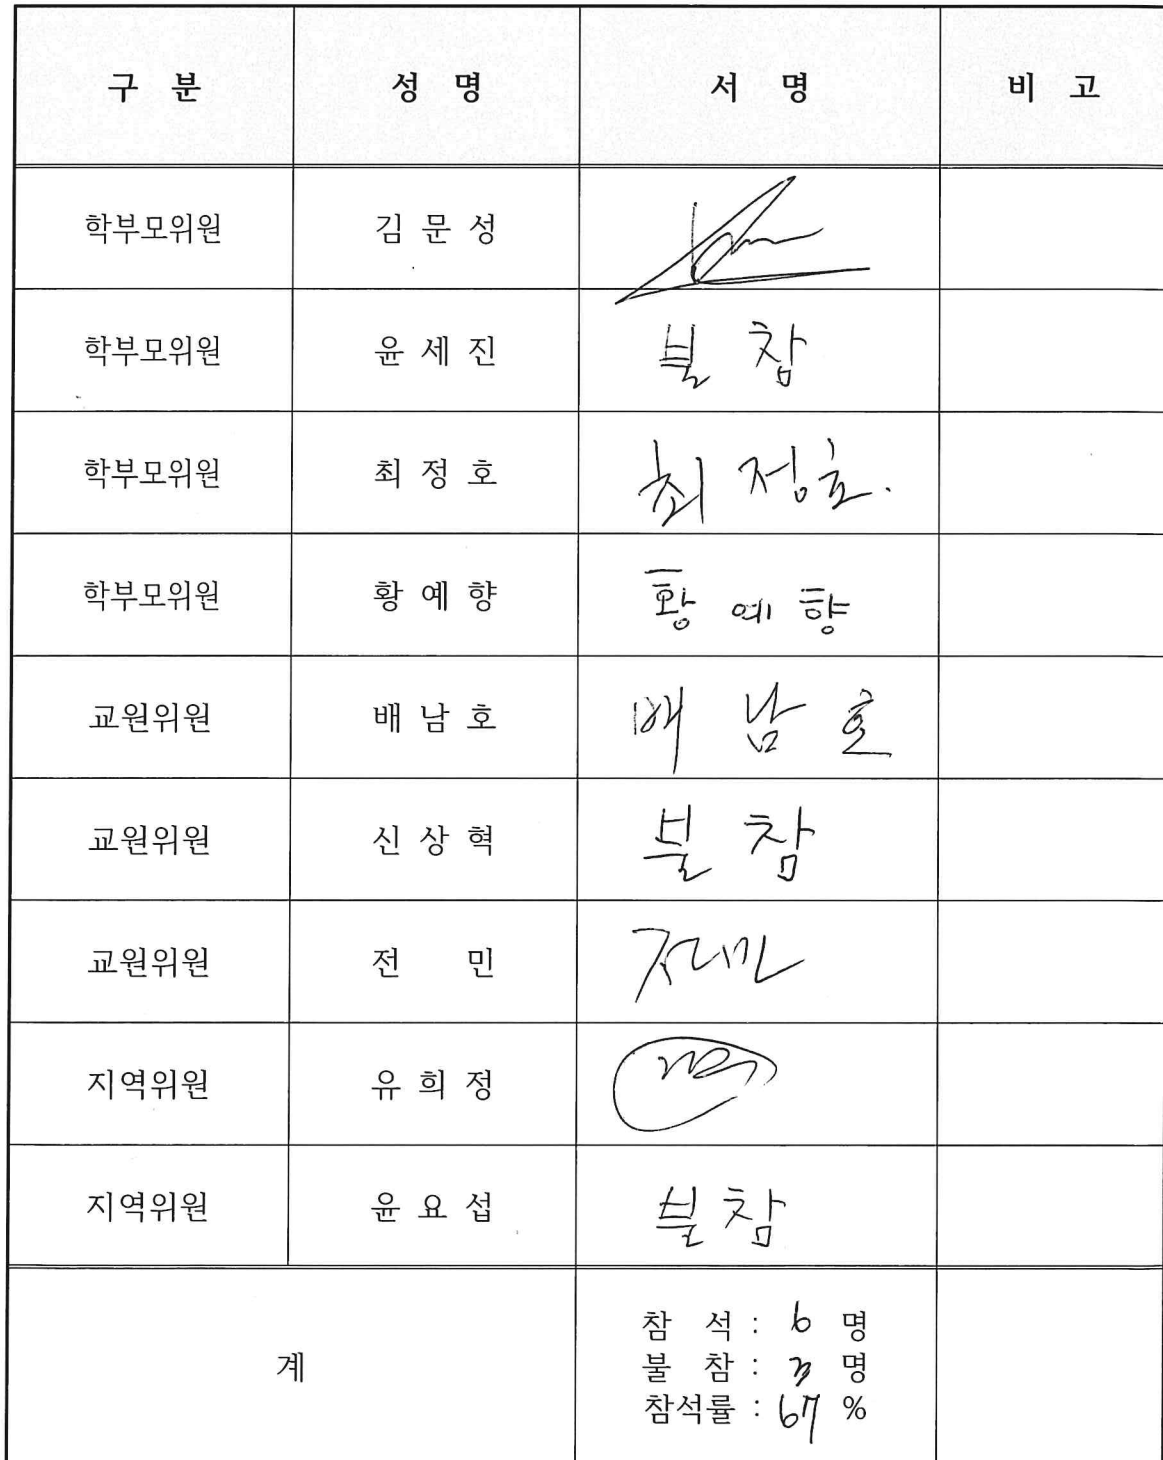 구 분 성 명 서 명 비 고
학부모위원 김 문 성
학부모위원 윤 세 진 불 참
학부모위원 최 정 호 최 정 호.
학부모위원 황 예 향 황 예 향
교원위원 배 남 호 배 남 호
교원위원 신 상 혁 불 참
교원위원 전 민 전민
지역위원 유 희 정
지역위원 윤 요 섭 불 참
계
참 석 : 6 명
불 참 : 3 명
참석률 : 67 %